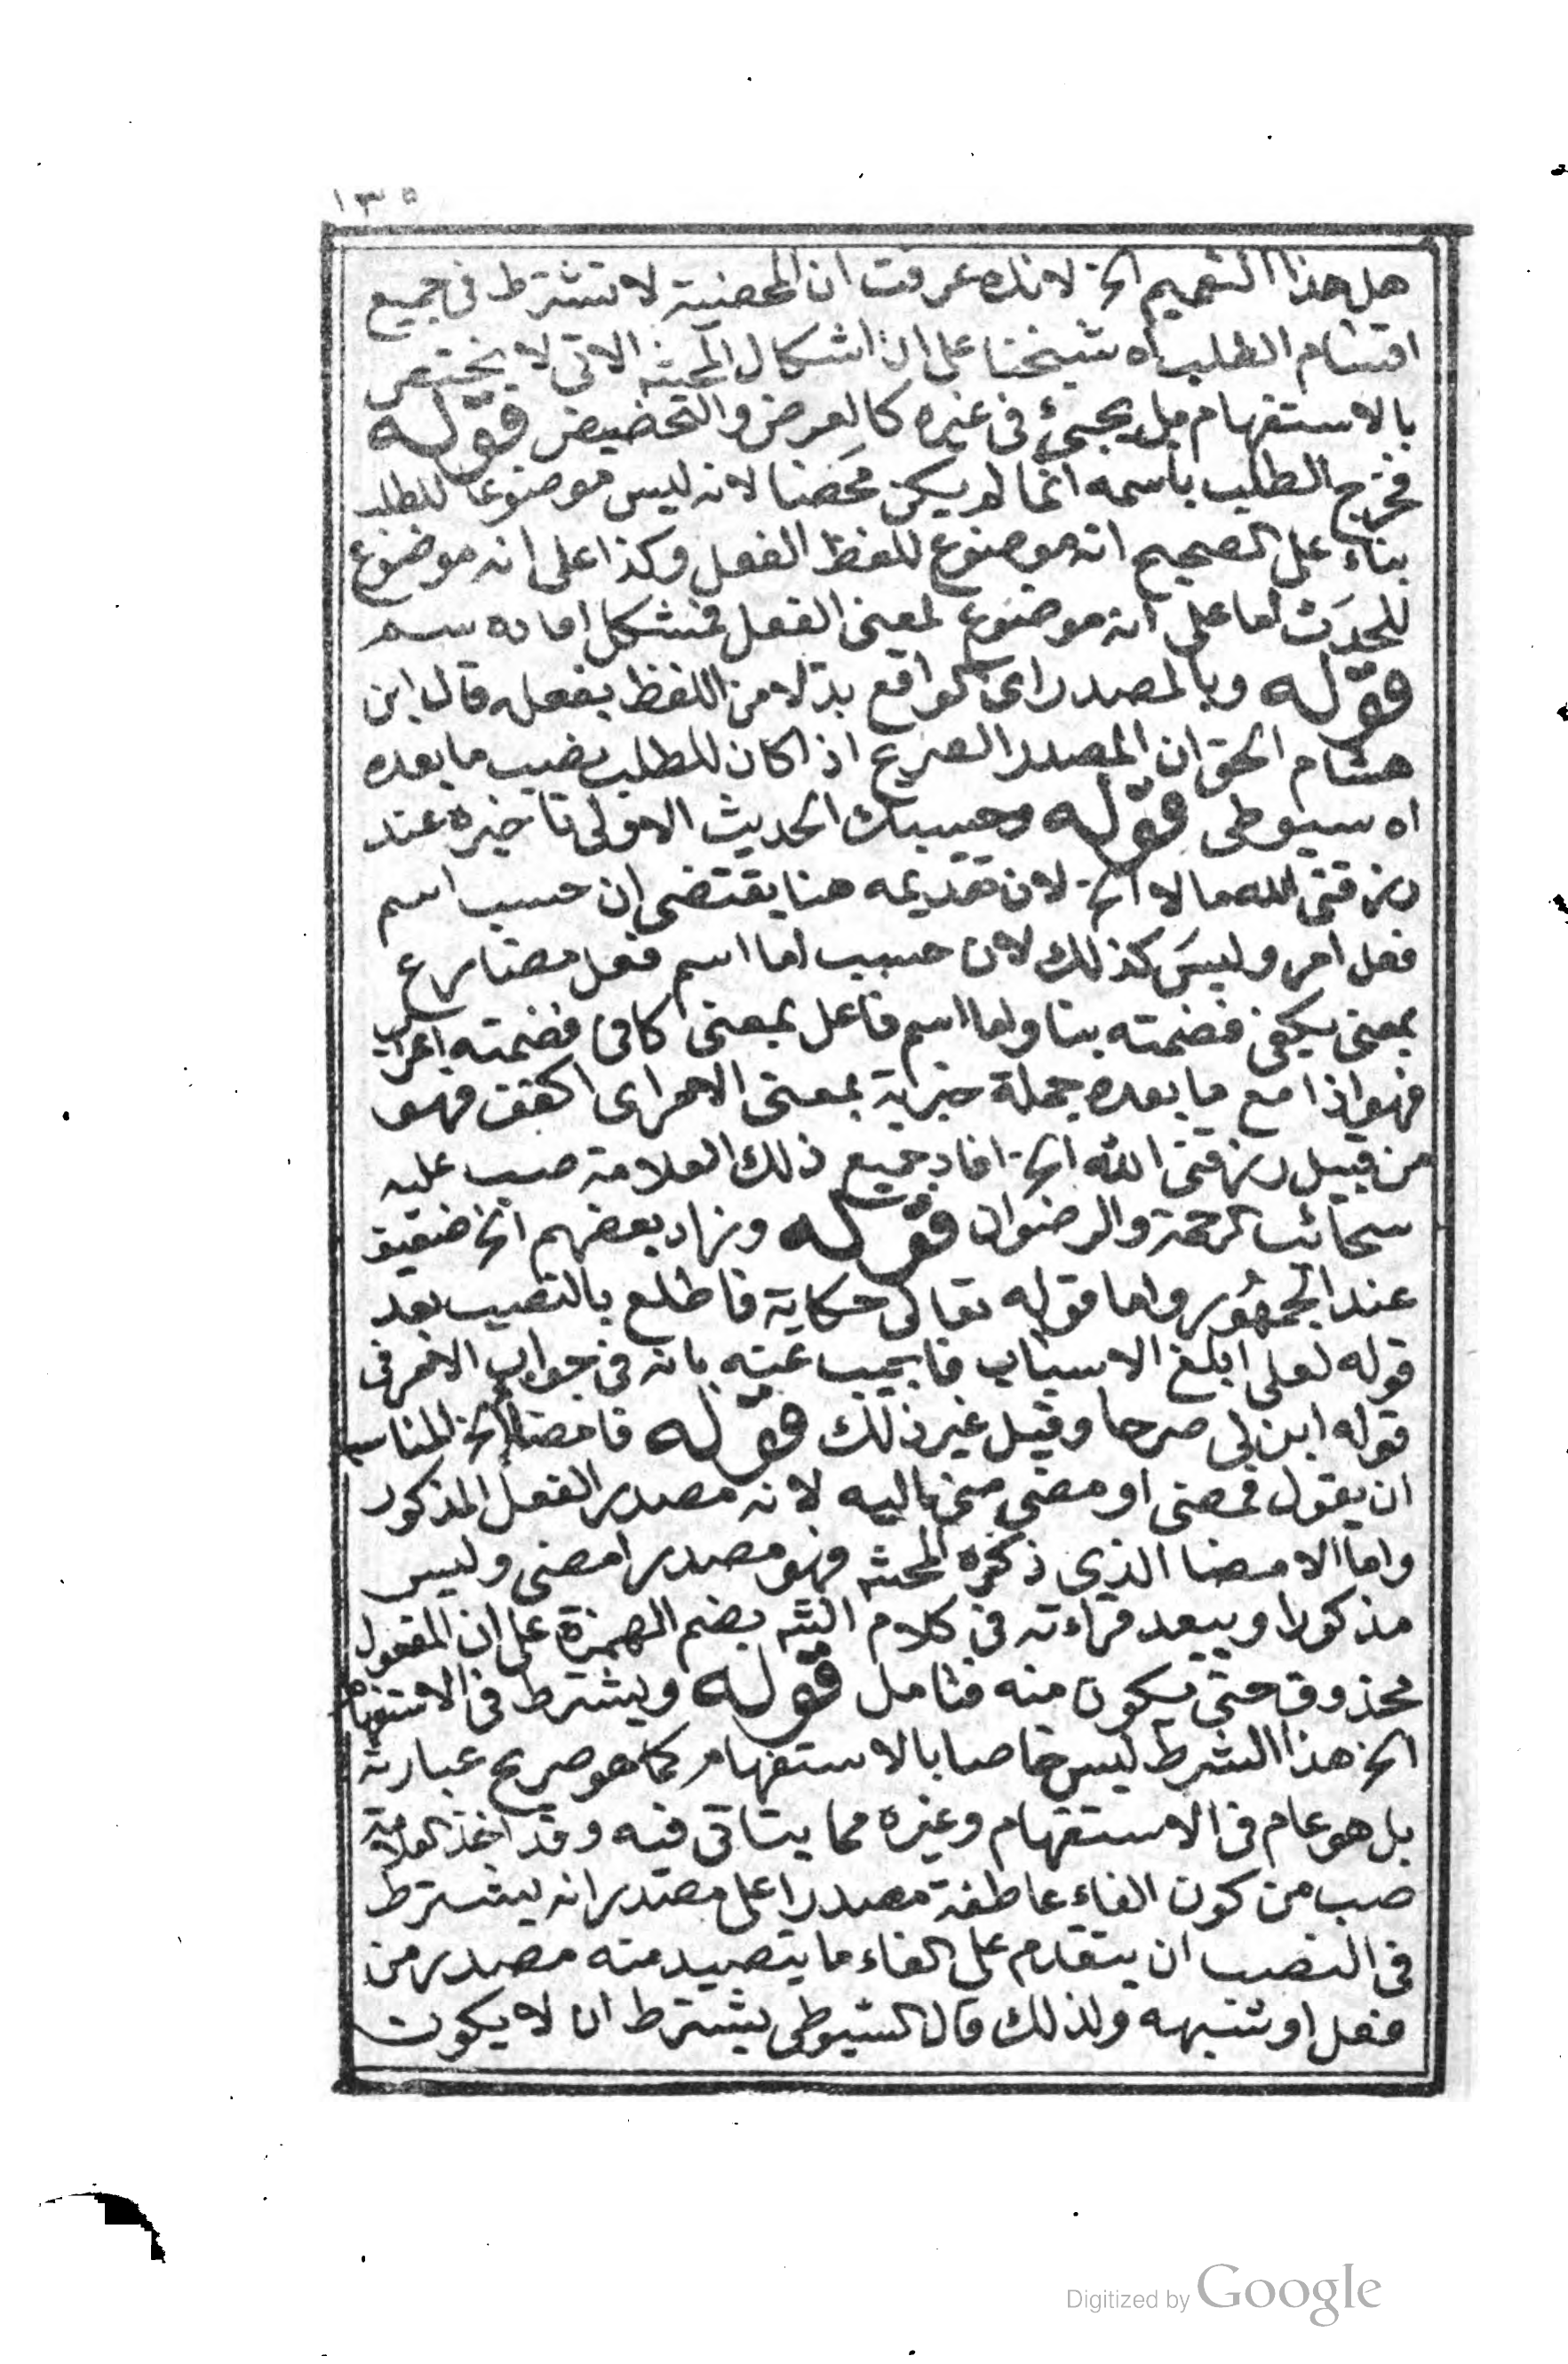 ١٣٥
هل هذا التعميم الخ لانك عرفت ان المحضية لا تشترط فى جميع
اقسام الطلب اه شيخنا على ان اشكال المحشه الاتى لا يختص
بالاستفهام بل يجيئ فى غيره كالعرض والتحضيض قوله
فخرج الطلب باسمه انما لم يكن محَضنا لانه ليس موضوعا للطلب
بناء على الصحيح انه موضوع للفظ الفعل وكذا على انه موضوع
للحدَث اما على انه موضوع لمعنى الفعل فمشكل افاده سم
قوله وبالمصدر اى الواقع بدلا من اللفظ بفعله قال ابن
هشام الحق ان المصدر الصريح اذا كان للطلب ينصب ما بعده
اه سيوطى قوله وحسبك الحديث الاولى تاخيره عند
رزقنى الله مالا الخ لان تقديمه هنا يقتضى ان حسب اسم
فعل امر وليسَ كذلك لان حسب اما اسم فعل مضارع
بمعنى يكفى فضمته بنا واما اسم فاعل بمعنى كافى فضمته اعراب
فهو اذا مع ما بعده جملة خبرية بمعنى الامر اى اكفف فهو
من قبيل رزقنى الله الخ افاد جميع ذلك العلامة صب عليه
سحائب الرحمة والرضوان قوله وزاد بعضهم الخ ضعيف
عند الجمهُور واما قوله تعالى حكاية فاطلع بالنصيب بعد
قوله لعلى ابلغ الاسباب فاجيب عنه بانه فى جواب الامر فى
قوله ابن لى صرحا وقيل غير ذلك قوله فامضا الخ المناسب
ان يقول فمضى او مضى منى اليه لانه مصدر الفعل المذكور
واما الامضا الذى ذكره المحشه فهو مصدر امضى وليس
مذكورا ويبعد قراءته فى كلام الشه بضم الهمزة على ان المفعول
محذوف حتى يكون منه فتامل قوله ويشترط فى الاستفهام
الخ هذا الشرط ليس خاصا بالاستفهام كما هو صريح عبارته
بل هو عام فى الاستفهام وغيره مما يتاتى فيه وقد اخذ العلامة
صب من كون الفاء عاطفة مصدرا على مصدر انه يشترط
فى النصب ان يتقدم على الفاء ما يتصيد منه مصدر من
فعل او شبهه ولذلك قال السيوطى يشترط ان لا يكون
Digitized by Google